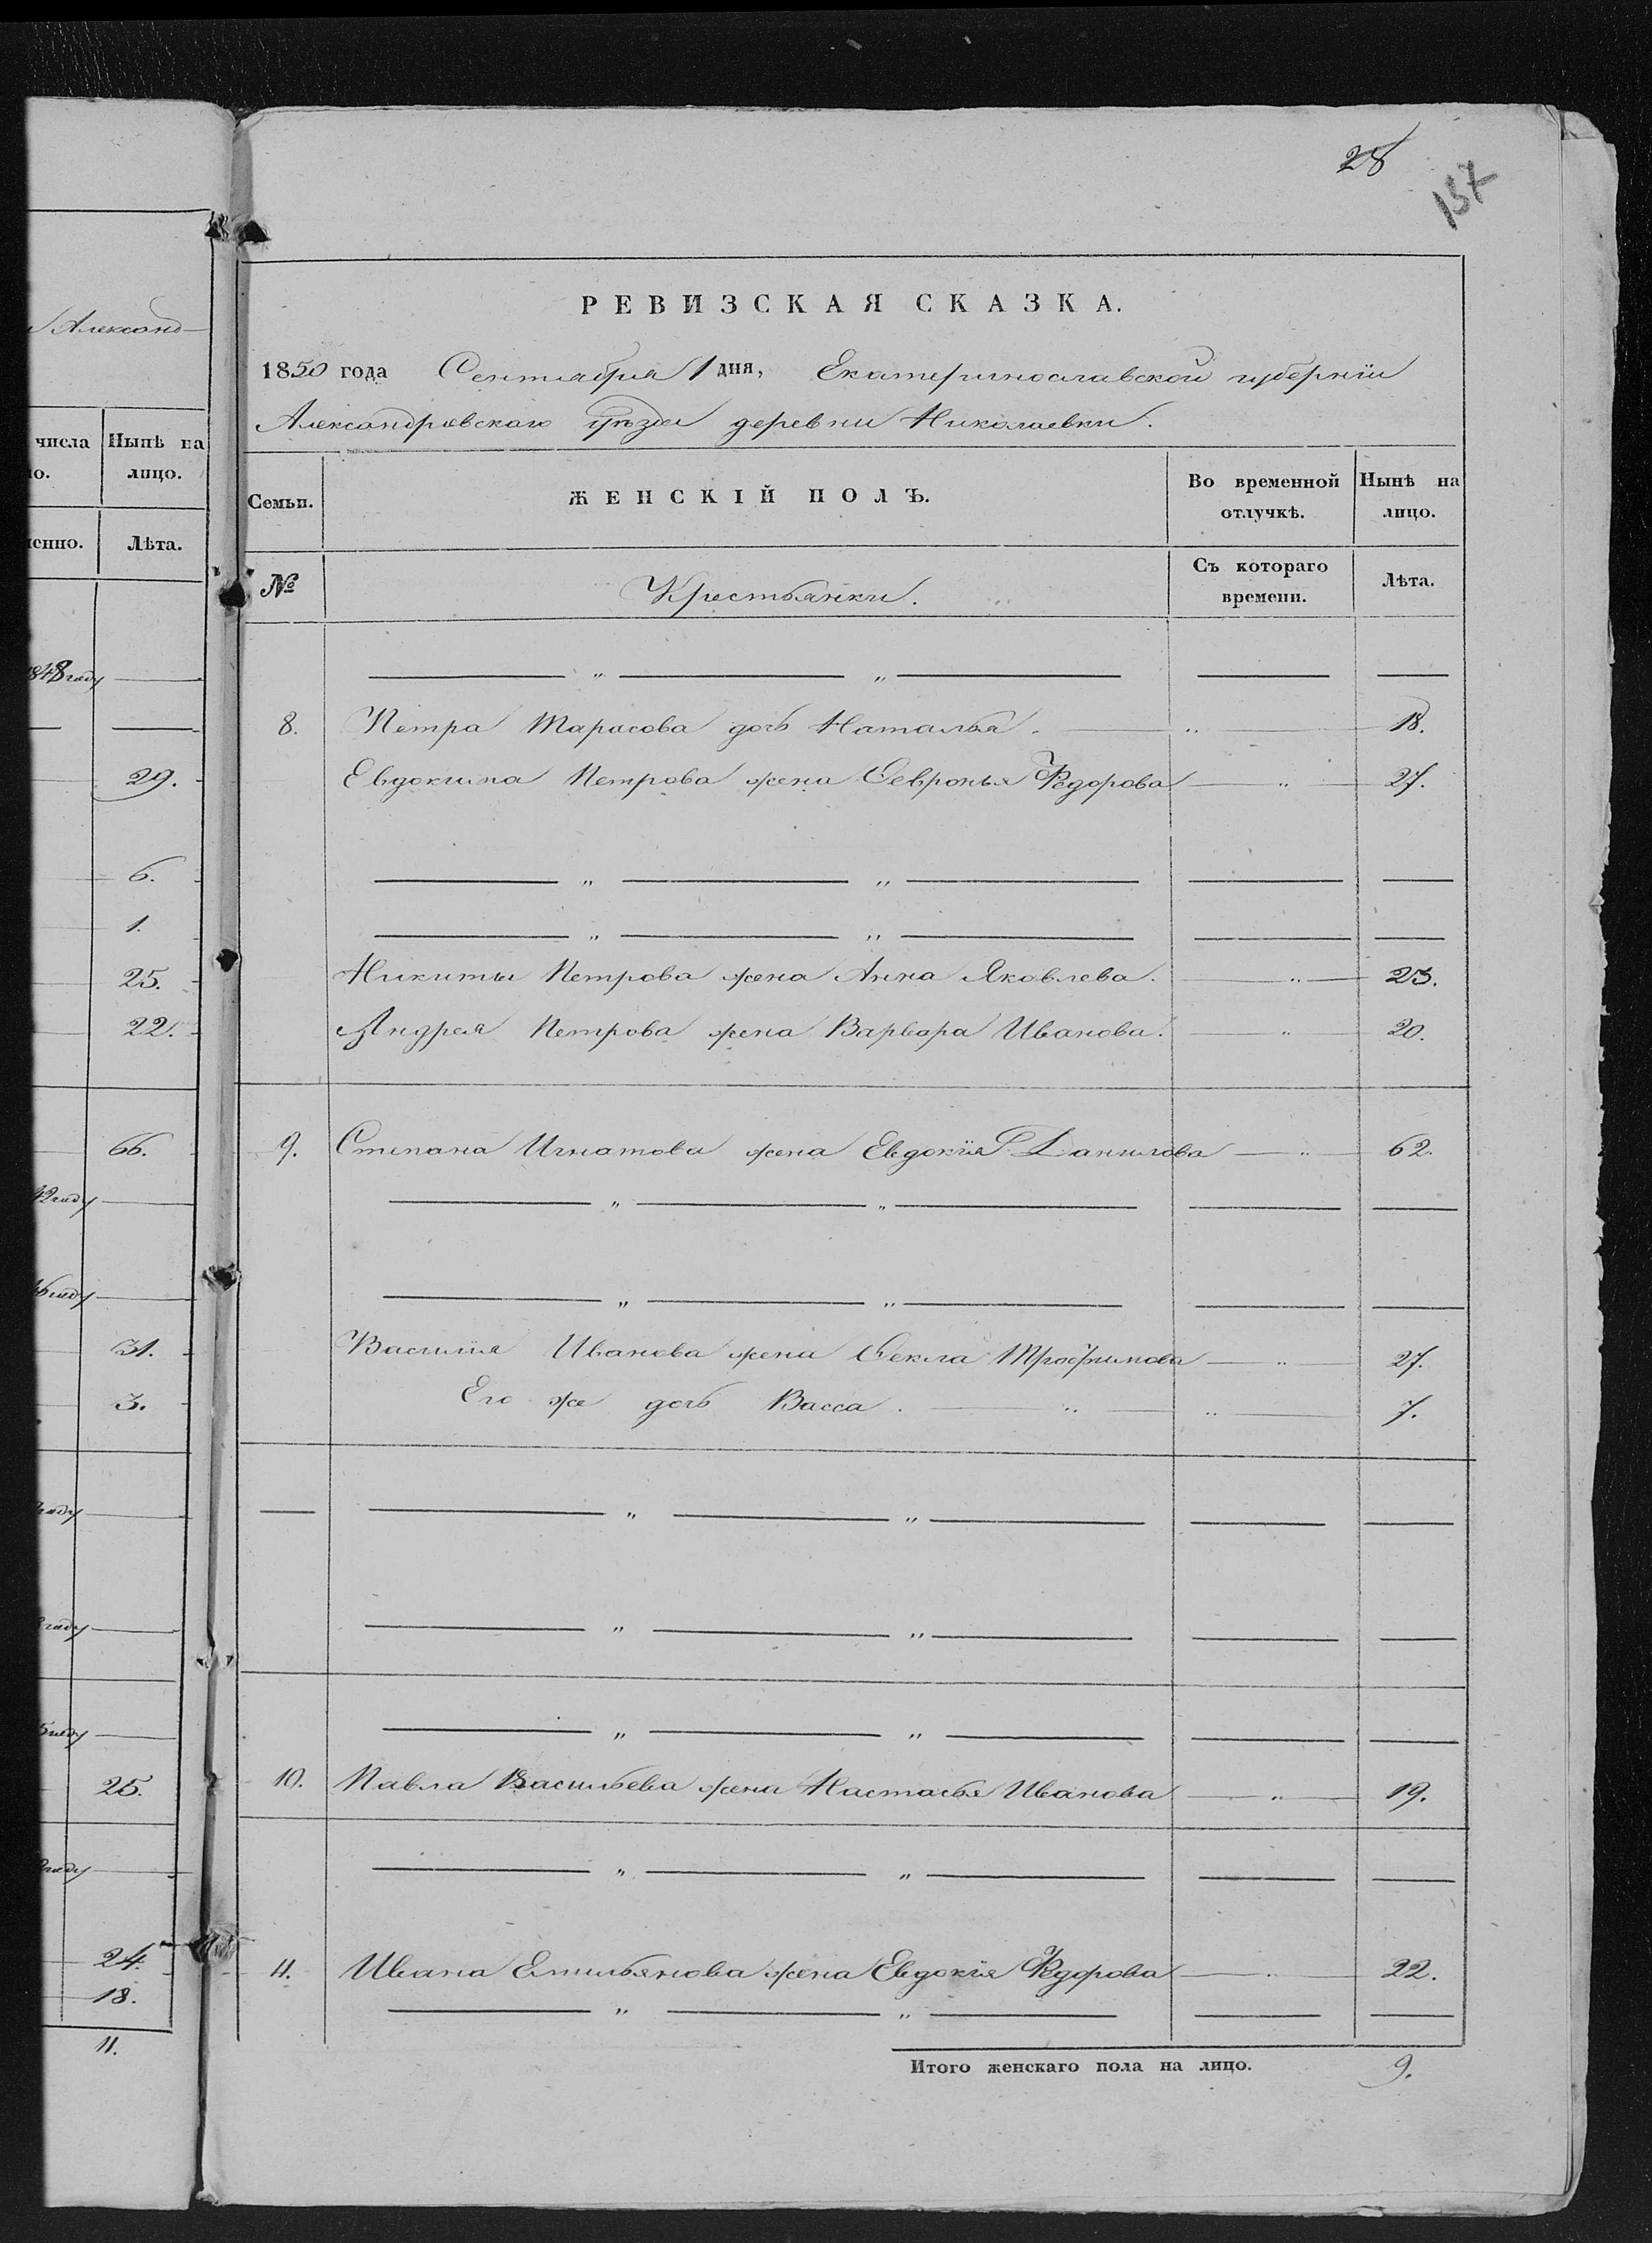 Александ-
числа
Нынѣ на
о.
лицо.
енно.
Лѣта.
1848 году
29.
6.
1.
25.
22.
66.
42 году
46 году
31.
3.
году
году
5 году
25.
году
24.
18.
11.
28
157
РЕВИЗСКАЯ СКАЗКА.
1850 года Сентября 1 дня, Екатеринославской губерніи
Александровскаго уѣзда деревни Николаевки.
Семьи.
ЖЕНСКІЙ ПОЛЪ.
Во временной
отлучкѣ.
Нынѣ на
лицо.
№
Крестьянки.
Съ котораго
времени.
Лѣта.
— „ — „ — — —
8. Петра Тарасова дочь Наталья. — „ — 18.
Евдокима Петрова жена Февронья Федорова — „ — 27.
— „ — „ — — —
— „ — „ — — —
Никиты Петрова жена Анна Яковлева. — „ — 23.
Андрея Петрова жена Варвара Иванова. — „ — 20.
9. Степана Игнатова жена Евдокія Данилова — „ — 62.
— „ — „ — — —
— „ — „ — — —
Василія Иванова жена Фекла Трофимова — „ — 27.
Его же дочь Васса. — „ — „ — 7.
— — „ — „ — — —
— „ — „ — — —
— „ — „ — — —
10. Павла Васильева жена Настасья Иванова — „ — 19.
— „ — „ — — —
11. Ивана Емильянова жена Евдокія Федорова — „ — 22.
— „ — „ — — —
Итого женскаго пола на лицо. 9.